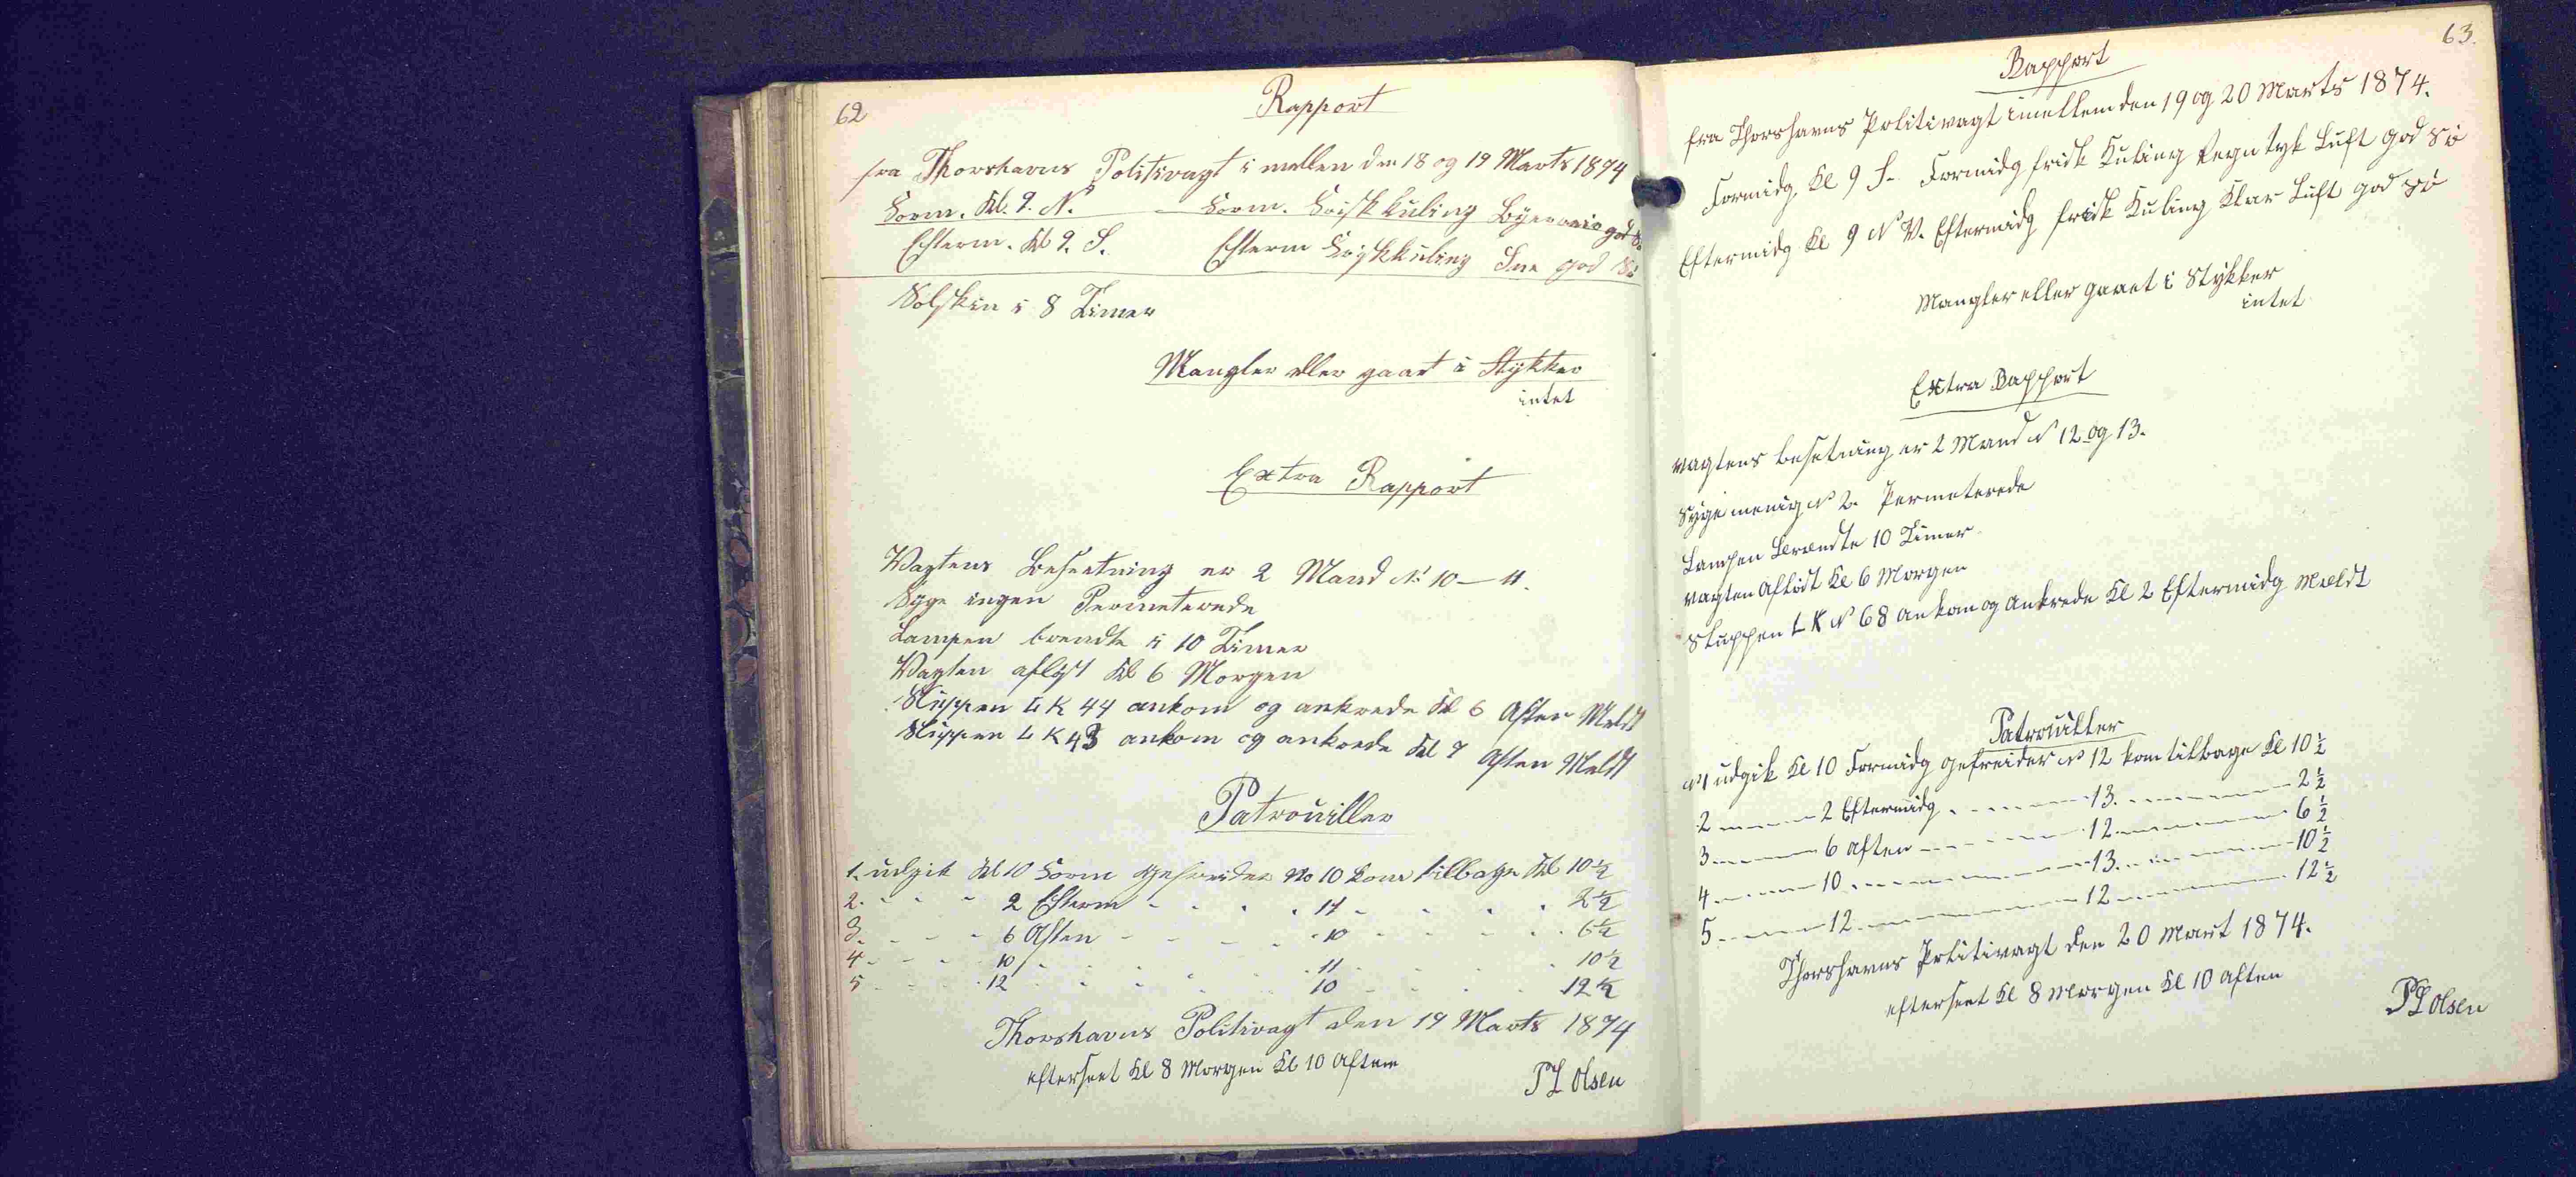 62
Rapport
fra Thorshavns Politivagt i mellen den 18 og 19 Marts 1874
Form. Kl. 9. N. Form. Friskkuling Byer god Sø
Efterm. Kl 9. S. Efterm Friskkuling Sne god Sø
Solskin i 8 Timer
Mangler eller gaaet i Stykker
intet
Extra Rapport
Vagtens Besætning er 2 Mand No 10 – 11.
Syge ingen Permeterede
Lampen brendte i 10 Timer
Vagten afløst Kl 6 Morgen
Sluppen L K 44 ankom og ankrede Kl 6 Aften Meldt
Sluppen L K 43 ankom og ankrede Kl 7 Aften Meldt
Patrouiller
1. udgik Kl 10 Form Gefreider No 10 kom tilbage Kl 10 1/2
2. - - - 2 Efterm - - - 11 - - - 2 1/2
3. - - - 6 Aften - - - 10 - - - 6 1/2
4 - - - 10 - - - 11 - - - 10 1/2
5 - - - 12 - - - 10 - - - 12 1/2
Thorshavns Politivagt den 19 Marts 1874
efterseet Kl 8 Morgen Kl 10 Aften
P L Olsen
63.
Rapport
fra Thorshavns Politivagt imellem den 19 og 20 Marts 1874.
Formidg Kl 9 S. Formidg frisk Kuling Regn tyk Luft god Sø
Eftermidg Kl 9 N V. Eftermidg frisk Kuling Klar Luft god Sø
Mangler eller gaaet i Stykker
intet
Extra Rapport
Vagtens Besetning er 2 Mand No 12 og 13.
Syge menig No 2. Permeterede
Lampen Brændte 10 Timer
Vagten Afløst Kl 6 Morgen
Sluppen L K No 68 ankom og Ankrede Kl 2 Eftermidg Meldt
Patrouiller
No 1 udgik Kl 10 Formidg gefreider No 12 kom tilbage Kl 10 1/2
2 - - - 2 Eftermidg - - - 13. - - - 2 1/2
3 - - - 6 aften - - - 12 - - - 6 1/2
4 - - - 10 - - - 13. - - - 10 1/2
5 - - - 12 - - - 12 - - - 12 1/2
Thorshavns Politivagt den 20 Mart 1874.
efterseet Kl 8 Morgen Kl 10 Aften
P L Olsen